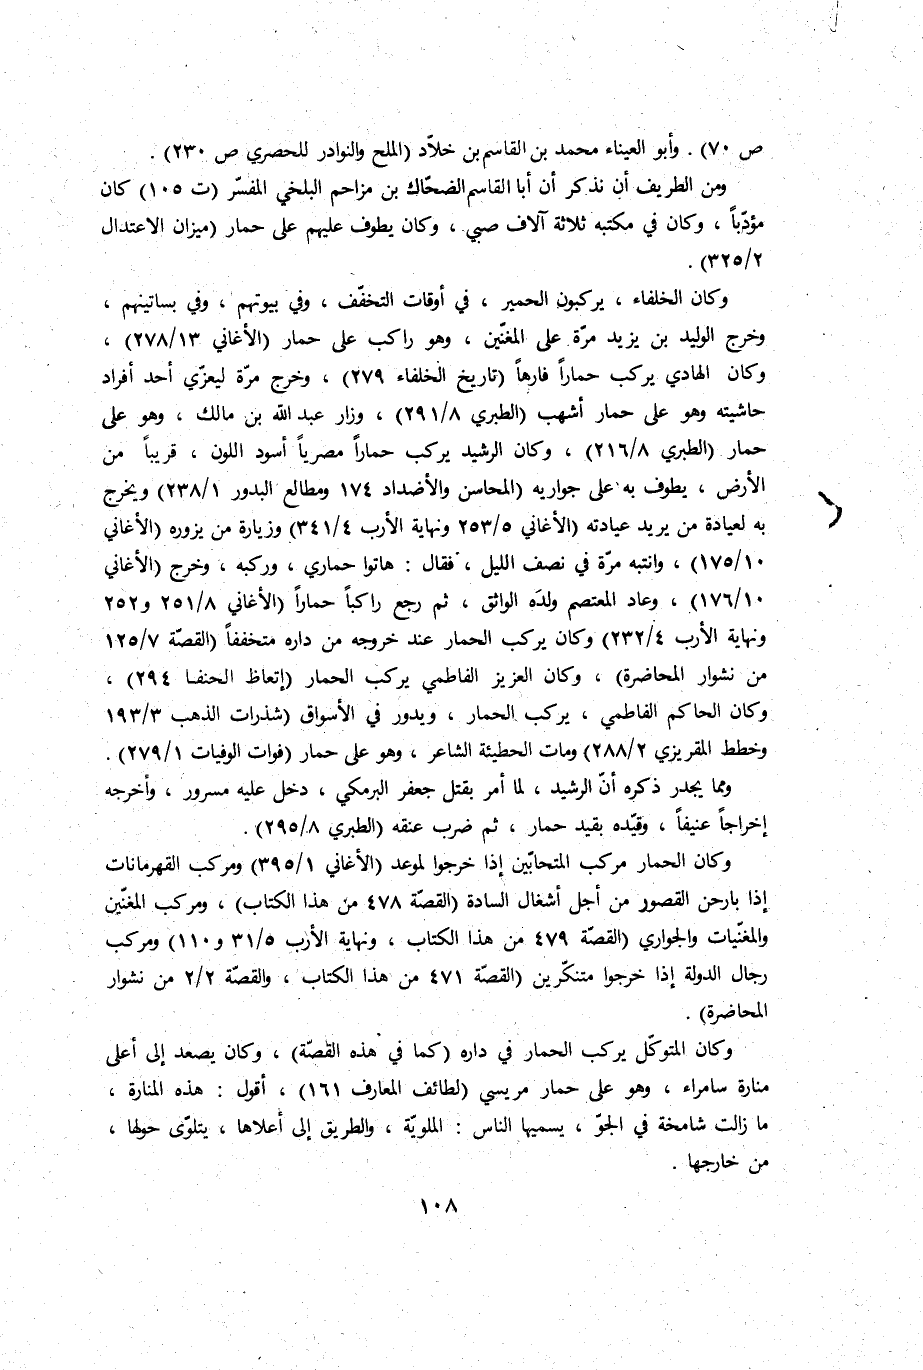 ص ٧٠) . وأبو العيناء محمد بن القاسم بن خلاّد (الملح والنوادر للحصري ص ٢٣٠) .
ومن الطريف أن نذكر أن أبا القاسم الضحّاك بن مزاحم البلخي المفسّر (ت ١٠٥) كان
مؤدّباً ، وكان في مكتبه ثلاثة آلاف صبي ، وكان يطوف عليهم على حمار (ميزان الاعتدال
٣٢٥/٢) .
وكان الخلفاء ، يركبون الحمير ، في أوقات التخفّف ، وفي بيوتهم ، وفي بساتينهم ،
وخرج الوليد بن يزيد مرّة على المغنّين ، وهو راكب على حمار (الأغاني ٢٧٨/١٣) ،
وكان الهادي يركب حماراً فارهاً (تاريخ الخلفاء ٢٧٩) ، وخرج مرّة ليعزّي أحد أفراد
حاشيته وهو على حمار أشهب (الطبري ٢٩١/٨) ، وزار عبد الله بن مالك ، وهو على
حمار (الطبري ٢١٦/٨) ، وكان الرشيد يركب حماراً مصرياً أسود اللون ، قريباً من
الأرض ، يطوف به على جواريه (المحاسن والأضداد ١٧٤ ومطالع البدور ٢٣٨/١) ويخرج
به لعيادة من يريد عيادته (الأغاني ٢٥٣/٥ ونهاية الأرب ٣٤١/٤) وزيارة من يزوره (الأغاني
١٧٥/١٠) ، وانتبه مرّة في نصف الليل ، فقال : هاتوا حماري ، وركبه ، وخرج (الأغاني
١٧٦/١٠) ، وعاد المعتصم ولدَه الواثق ، ثم رجع راكباً حماراً (الأغاني ٢٥١/٨ و٢٥٢
ونهاية الأرب ٢٣٢/٤) وكان يركب الحمار عند خروجه من داره متخففاً (القصّة ١٢٥/٧
من نشوار المحاضرة) ، وكان العزيز الفاطمي يركب الحمار (إتعاظ الحنفا ٢٩٤) ،
وكان الحاكم الفاطمي ، يركب الحمار ، ويدور في الأسواق (شذرات الذهب ١٩٣/٣
وخطط المقريزي ٢٨٨/٢) ومات الحطيئة الشاعر ، وهو على حمار (فوات الوفيات ٢٧٩/١) .
ومما يجدر ذكره أنّ الرشيد ، لما أمر بقتل جعفر البرمكي ، دخل عليه مسرور ، وأخرجه
إخراجاً عنيفاً ، وقيّده بقيد حمار ، ثم ضرب عنقه (الطبري ٢٩٥/٨) .
وكان الحمار مركب المتحابّين إذا خرجوا لموعد (الأغاني ٣٩٥/١) ومركب القهرمانات
إذا بارحن القصور من أجل أشغال السادة (القصّة ٤٧٨ من هذا الكتاب) ، ومركب المغنّين
والمغنّيات والجواري (القصّة ٤٧٩ من هذا الكتاب ، ونهاية الأرب ٣١/٥ و١١٠) ومركب
رجال الدولة إذا خرجوا متنكّرين (القصّة ٤٧١ من هذا الكتاب ، والقصّة ٢/٢ من نشوار
المحاضرة) .
وكان المتوكّل يركب الحمار في داره (كما في هذه القصّة) ، وكان يصعد إلى أعلى
منارة سامراء ، وهو على حمار مريسي (لطائف المعارف ١٦١) ، أقول : هذه المنارة ،
ما زالت شامخة في الجوّ ، يسميها الناس : الملويّة ، والطريق إلى أعلاها ، يتلوّى حولها ،
من خارجها .
١٠٨